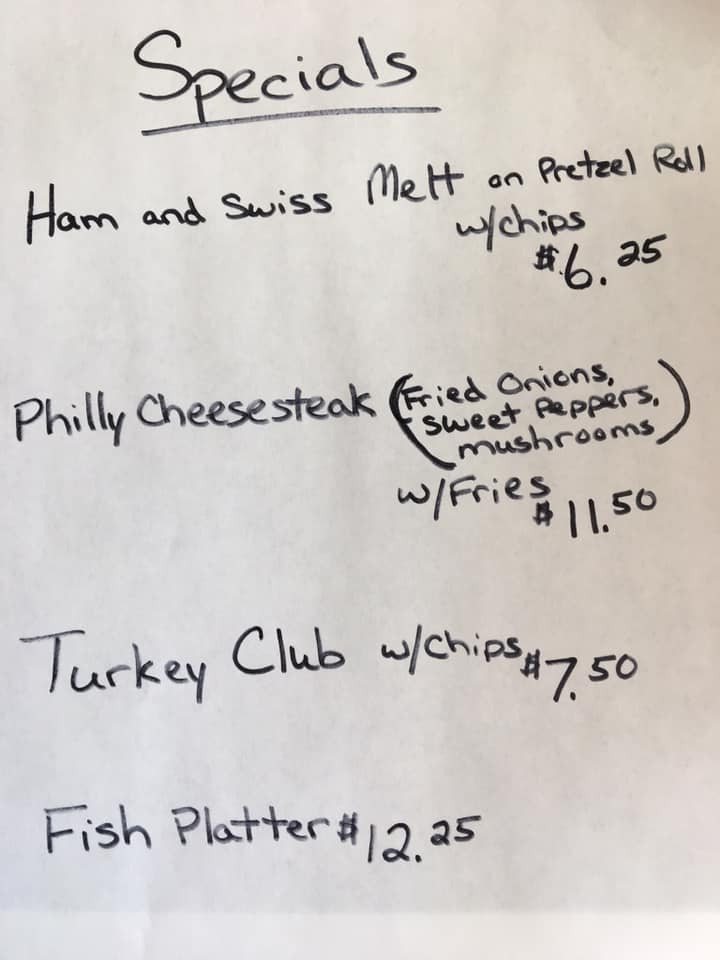 Specials
Ham and Swiss Melt on Pretzel Roll
w/chips
$6.25
Philly Cheesesteak (Fried Onions,
sweet Peppers,
mushrooms)
w/Fries
$11.50
Turkey Club w/chips $7.50
Fish Platter $12.25